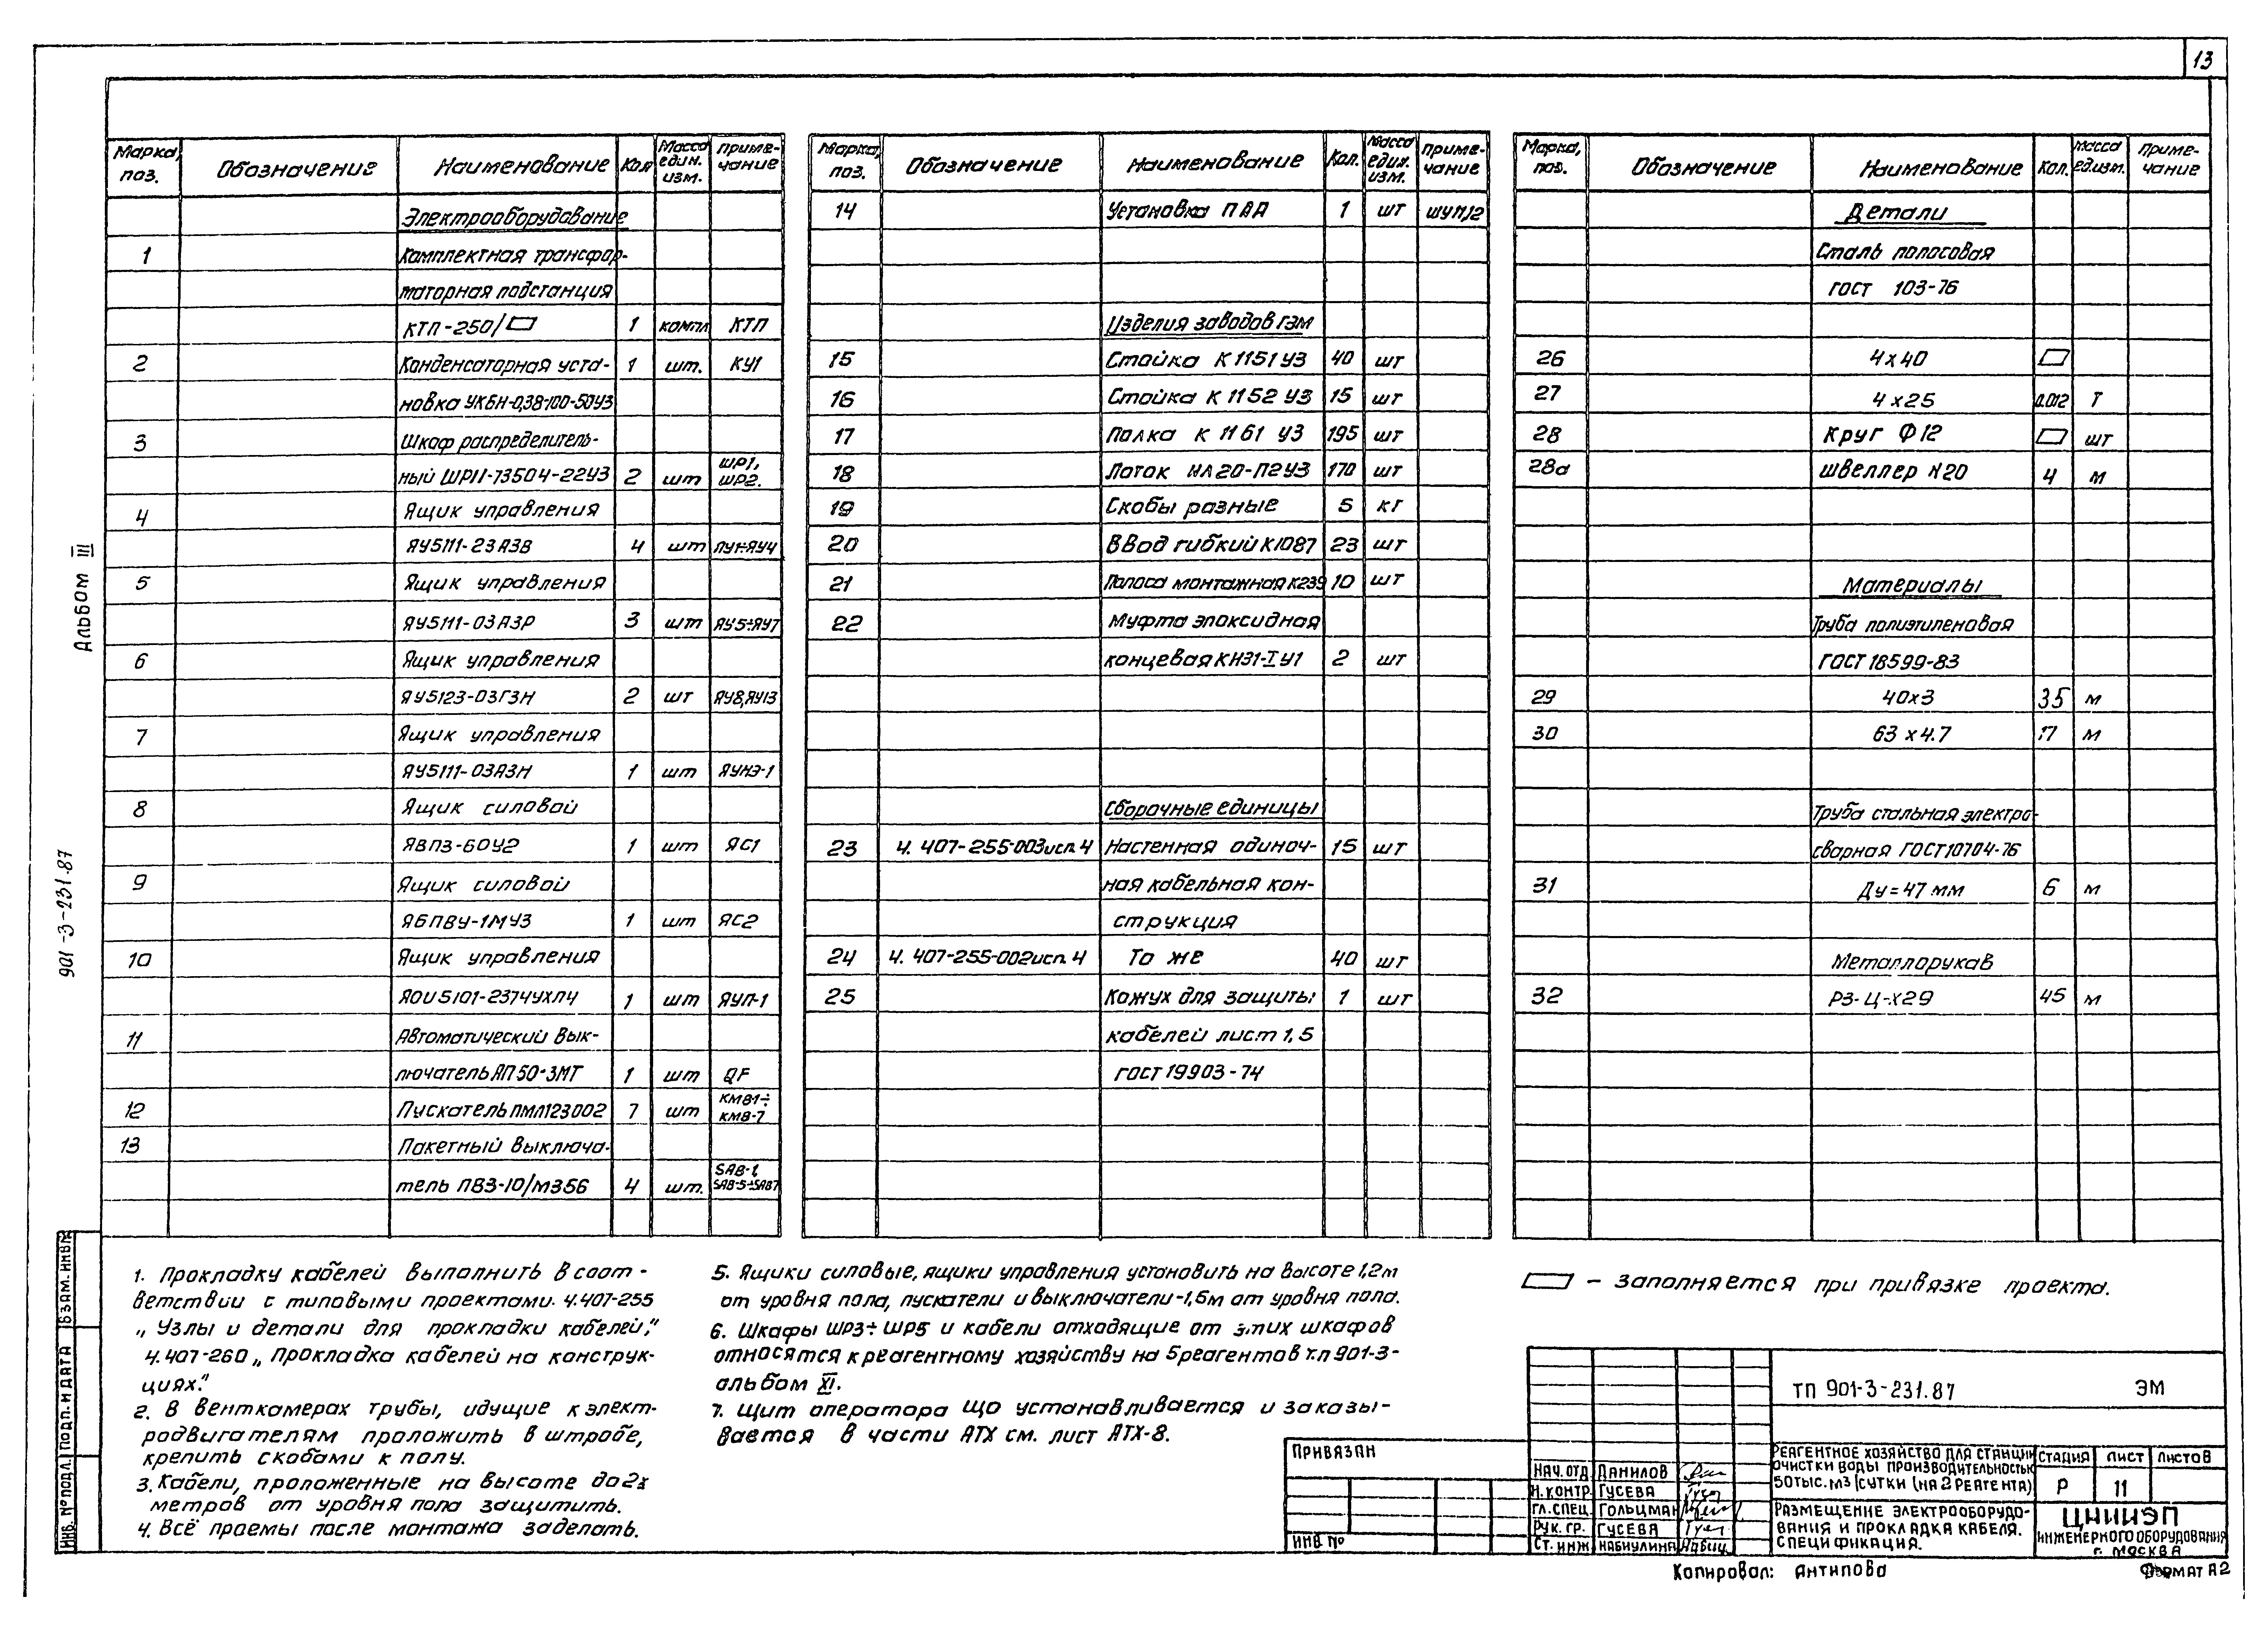 13
Марка, поз. Обозначение Наименование Кол Масса един. изм. Примечание
Электрооборудование
1 Комплектная трансфор-
маторная подстанция
КТП-250/▱ 1 компл КТП
2 Конденсаторная уста- 1 шт. КУ1
новка УКБН-0,38-100-50У3
3 Шкаф распределитель-
ный ШР11-73504-22У3 2 шт ШР1, ШР2.
4 Ящик управления
ЯУ5111-23А3В 4 шт ЯУ1÷ЯУ4
5 Ящик управления
ЯУ5111-03А3Р 3 шт ЯУ5÷ЯУ7
6 Ящик управления
ЯУ5123-03Г3Н 2 шт ЯУ8,ЯУ13
7 Ящик управления
ЯУ5111-03А3Н 1 шт ЯУНЭ-1
8 Ящик силовой
ЯВПЗ-60У2 1 шт ЯС1
9 Ящик силовой
ЯБПВУ-1МУ3 1 шт ЯС2
10 Ящик управления
ЯОУ5101-2374УХЛ4 1 шт ЯУП-1
11 Автоматический вык-
лючатель АП50-3МТ 1 шт QF
12 Пускатель ПМЛ123002 7 шт КМВ1÷ КМВ-7
13 Пакетный выключа-
тель ПВ3-10/М356 4 шт. SАВ-1, SАВ-5÷SАВ7
Марка, поз. Обозначение Наименование Кол. Масса един. изм. Примечание
14 Установка ПАА 1 шт ШУП,12
Изделия заводов ГЭМ
15 Стойка К 1151 У3 40 шт
16 Стойка К 1152 У3 15 шт
17 Полка К 1161 У3 195 шт
18 Лоток НЛ20-П2У3 170 шт
19 Скобы разные 5 кг
20 Ввод гибкий К1087 23 шт
21 Полоса монтажная К239 10 шт
22 Муфта эпоксидная
концевая КНЭ1-I У1 2 шт
Сборочные единицы
23 4. 407-255-003исп. 4 Настенная одиноч- 15 шт
ная кабельная кон-
струкция
24 4. 407-255-002исп. 4 То же 40 шт
25 Кожух для защиты 1 шт
кабелей лист 1,5
ГОСТ 19903-74
Марка, поз. Обозначение Наименование Кол. Масса ед.изм. Примечание
Детали
Сталь полосовая
ГОСТ 103-76
26 4х40 ▱
27 4х25 0.012 Т
28 Круг Ф12 ▱ шт
28а Швеллер N20 4 м
Материалы
Труба полиэтиленовая
ГОСТ 18599-83
29 40х3 35 м
30 63 х 4.7 17 м
Труба стальная электро-
сварная ГОСТ10704-76
31 Ду=47 мм 6 м
Металлорукав
32 РЗ-Ц-Х29 45 м
Альбом III
901-3-231.87
ВЗАМ. ИНВ.N
ПОДП. И ДАТА
ИНВ. №ПОДЛ.
1. Прокладку кабелей выполнить в соот-
ветствии с типовыми проектами. 4.407-255
„Узлы и детали для прокладки кабелей,"
4.407-260 „Прокладка кабелей на конструк-
циях."
2. В венткамерах трубы, идущие к элект-
родвигателям проложить в штробе,
крепить скобами к полу.
3. Кабели, проложенные на высоте до 2х
метров от уровня пола защитить.
4. Всё проемы после монтажа заделать.
5. Ящики силовые, ящики управления установить на высоте 1,2м
от уровня пола, пускатели и выключатели-1,6м от уровня пола.
6. Шкафы ШР3÷ ШР5 и кабели отходящие от этих шкафов
относятся к реагентному хозяйству на 5реагентов т.п 901-3-
альбом XI.
7. Щит оператора ЩО устанавливается и заказы-
вается в части АТХ см. лист АТХ-8.
▱ - заполняется при привязке проекта.
ПРИВЯЗАН
ИНВ №
НАЧ. ОТД ДАНИЛОВ
Н. КОНТР. ГУСЕВА
ГЛ. СПЕЦ. ГОЛЬЦМАН
РУК. ГР. ГУСЕВА
СТ. ИНЖ НАБИУЛИНА
ТП 901-3-231.87 ЭМ
РЕАГЕНТНОЕ ХОЗЯЙСТВО ДЛЯ СТАНЦИИ
ОЧИСТКИ ВОДЫ ПРОИЗВОДИТЕЛЬНОСТЬЮ
50ТЫС. М3/СУТКИ (НА 2 РЕАГЕНТА)
СТАДИЯ ЛИСТ ЛИСТОВ
Р 11
РАЗМЕЩЕНИЕ ЭЛЕКТРООБОРУДО-
ВАНИЯ И ПРОКЛАДКА КАБЕЛЯ.
СПЕЦИФИКАЦИЯ.
ЦНИИЭП
ИНЖЕНЕРНОГО ОБОРУДОВАНИЯ
г. МОСКВА
Копировал: Антипова
ФОРМАТ А2